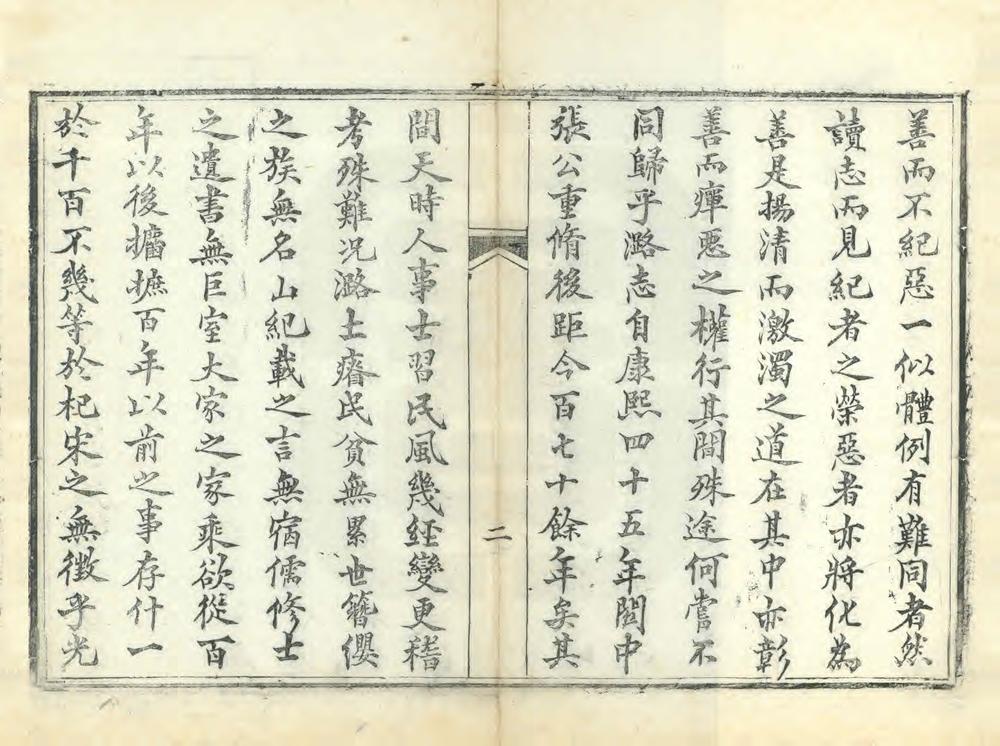 善而不紀惡一似體例有難同者然
讀志而見紀者之榮惡者亦將化為
善是揚清而激濁之道在其中亦彰
善而癉惡之權行其間殊途何嘗不
同歸乎潞志自康熙四十五年閩中
張公重脩後距今百七十餘年矣其
二
間天時人事士習民風幾經變更稽
考殊難況潞土瘠民貧無累世簪纓
之族無名山紀載之言無宿儒修士
之遺書無巨室大家之家乘欲從百
年以後摭摭百年以前之事存什一
於千百不幾等於杞宋之無徵乎光